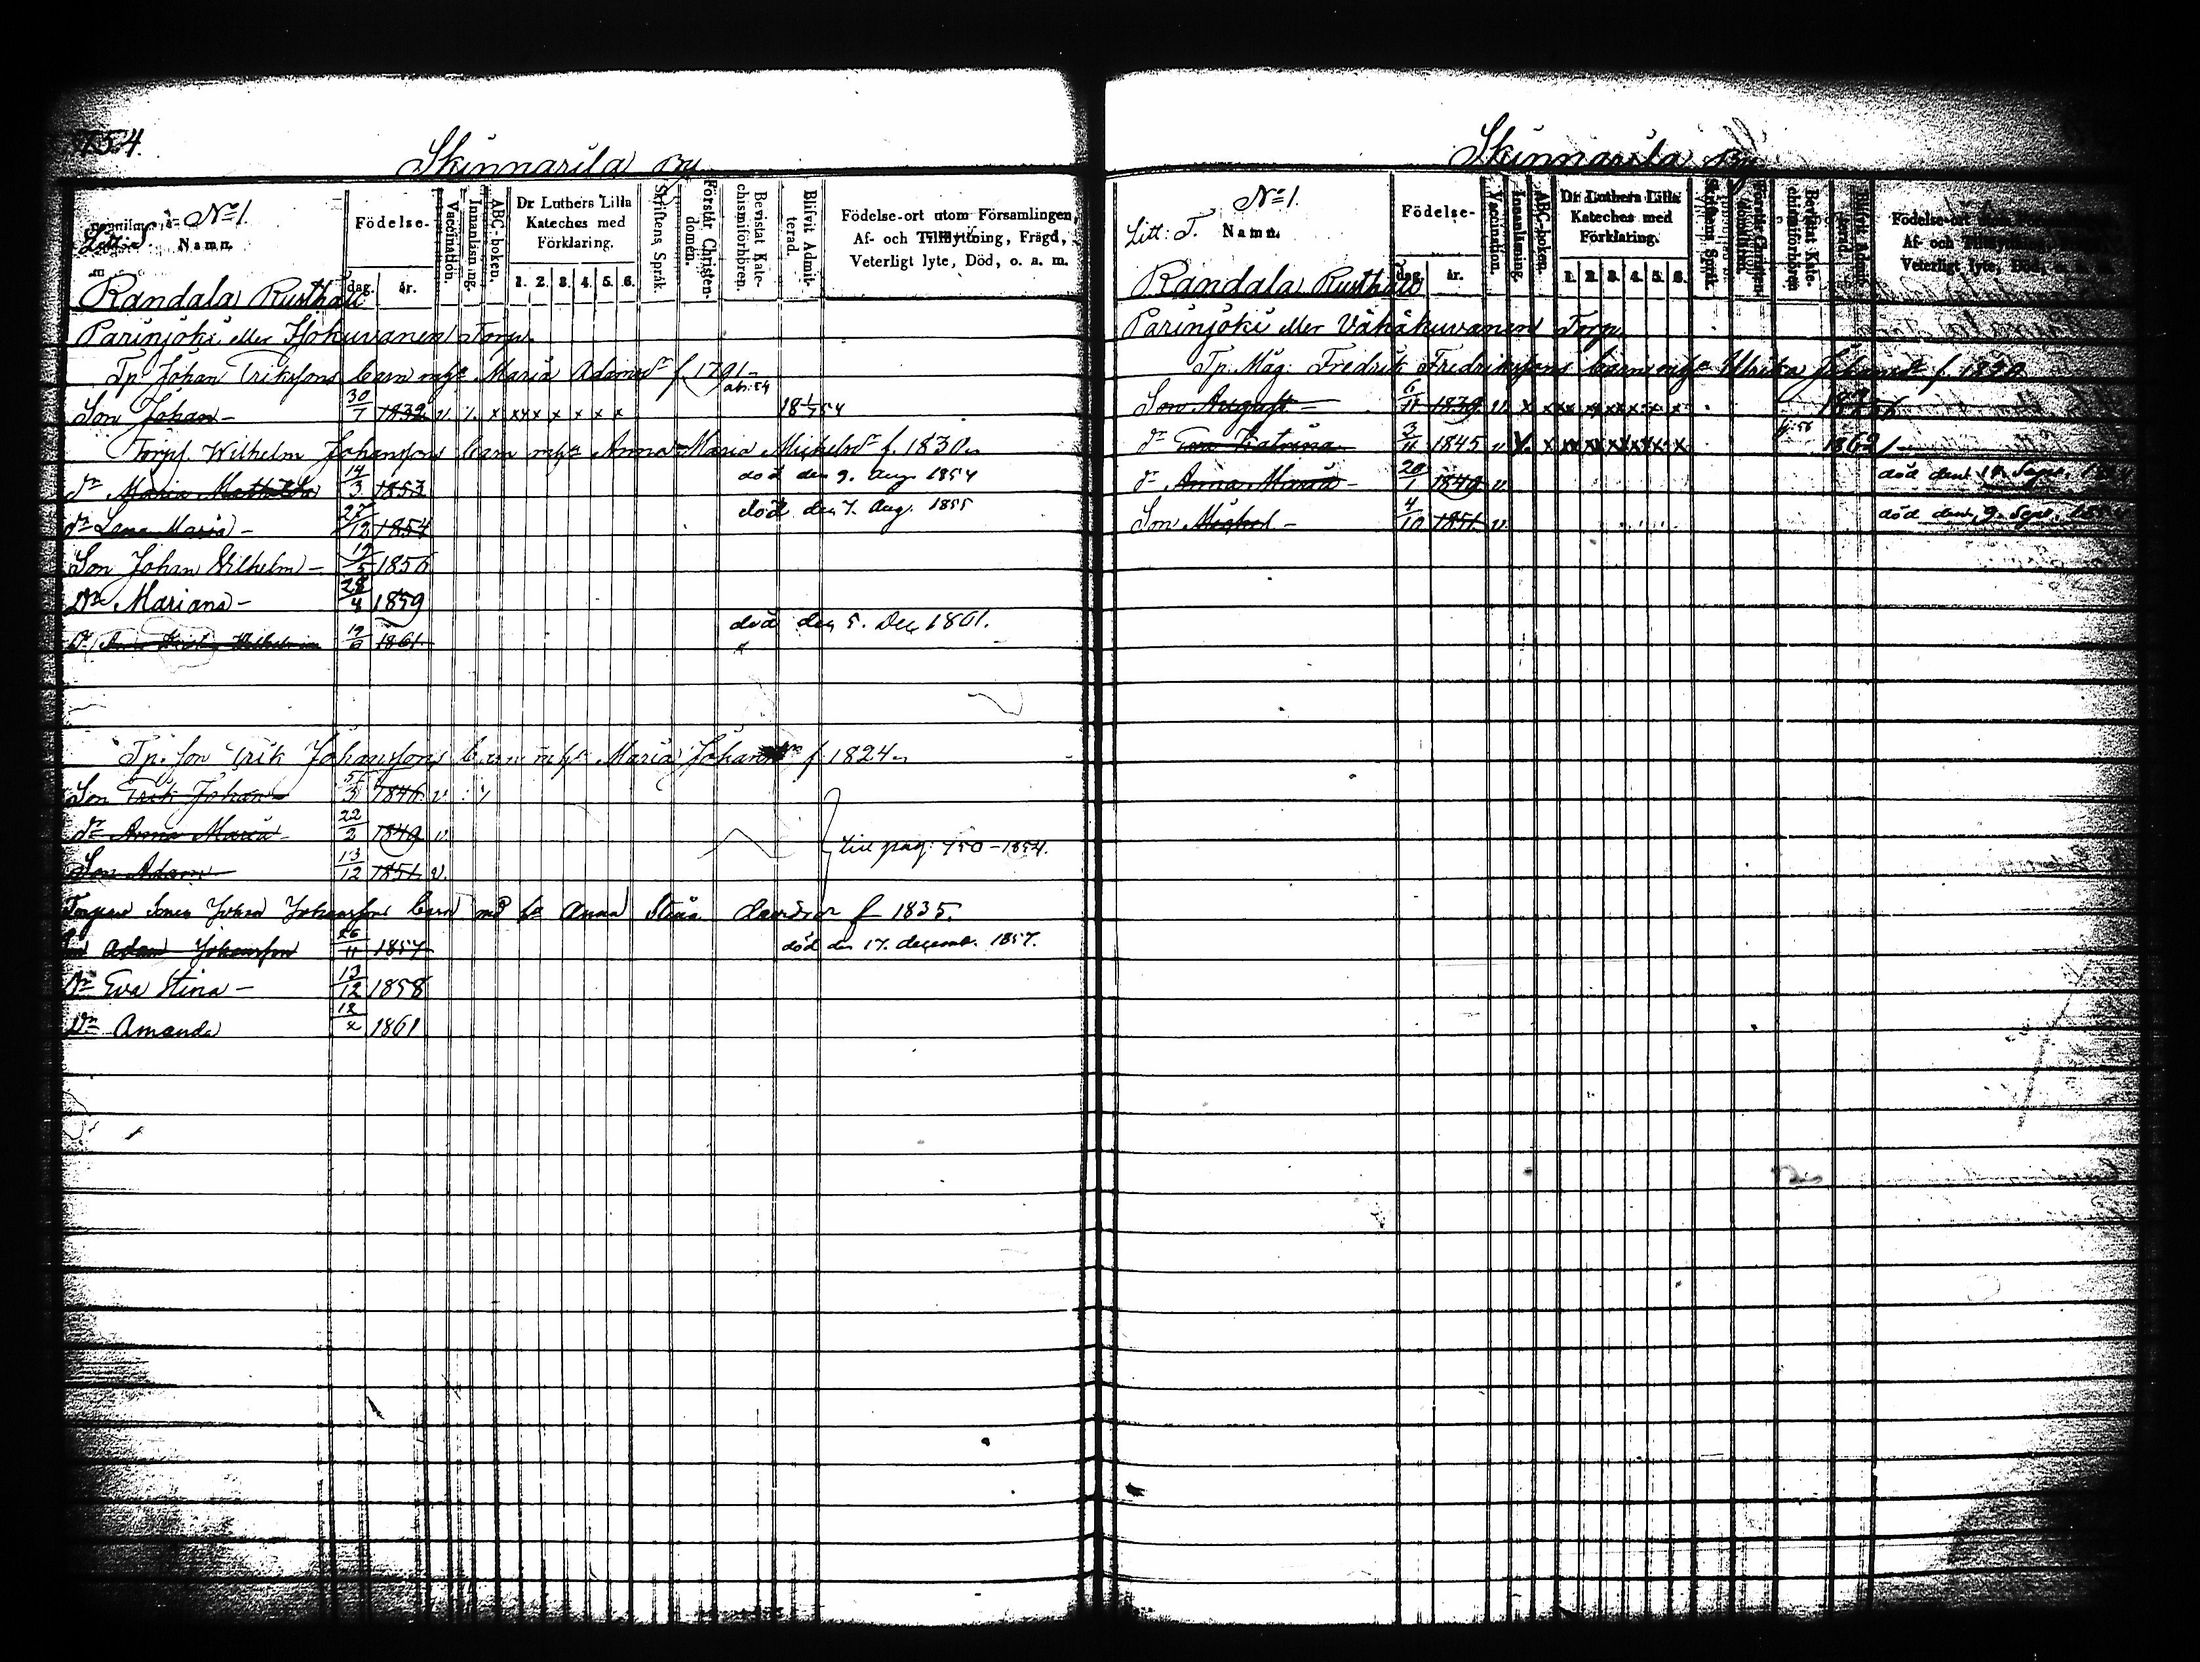 754.
Skinnarila By
No 1.
Namn.
Födelse-
dag. år.
Vaccination.
Innanläsning.
ABC-boken.
Dr Luthers Lilla Kateches med Förklaring.
1. 2. 3. 4. 5. 6.
Skriftens Språk.
Förstår Christendomen.
Bevistat Katechismiförhören.
Blifvit Admitterad.
Födelse-ort utom Församlingen,
Af- och Tillflyttning, Frägd,
Veterligt lyte, Död, o. a. m.
Randala Rusthåll
Parinjoki eller Torp
Tp. Johan Eriksons barn m. h. Maria Adamsdr f. 1791
Son Johan 30/7 1832 v. x xx x x x x x 18 54
Torp. Wilhelm Johansons barn m. h. Anna Maria Michelsdr f. 1830
dr Maria Mathilda 14/3 1853 död den 9. Aug 1854
dr Lena Maria 27/12 1854 död den 7. Aug. 1855
Son Johan Wilhelm 19/5 1856
Dr Mariana 28/4 1859
Dr Wilhelmina 19/ 1861 död den 5. Dec 1861.
Tp. Son Erik Johansons barn m. h. Maria Johansdr f. 1824
Son Erik Johan 3 1846 v.
dr Anna Maria 22/2 1849 v.
till pag: 750 - 1854.
Son Adam 13/12 1851 v.
Torpare Sonen Johan Johanssons barn med h. Anna Stina Davidsdr f 1835.
Son Adam Johansson 26/11 1857 död den 17. decemb. 1857.
Dr Eva Stina 13/12 1858
Dr Amanda 12/ 1861
Skinnarila By
No 1.
Litt: T. Namn.
Födelse-
dag. år.
Vaccination.
Innanläsning.
ABC-boken.
Dr Luthers Lilla Kateches med Förklaring.
1. 2. 3. 4. 5. 6.
Skriftens Språk.
Förstår Christendomen.
Bevistat Katechismiförhören
Blifvit Admitterad.
Födelse-ort utom Församlingen
Af- och Tillflyttning
Veterligt lyte, Död, o. a. m.
Randala Rusthåll
Parinjoki eller Vähäkuvanen Torp
Tp. Måg. Fredrik Fredriksons barn m. h. Ulrika Johansdr f. 1820
Son August 6/11 1839 v. x xx xxxxxx
dr Eva Katrina 3/11 1845 v x xx xxxxxx 1862
dr Anna Maria 20/1 1849 v. död den 14. Sept.
Son Michel 4/10 1851 v. död den 9. Sept.